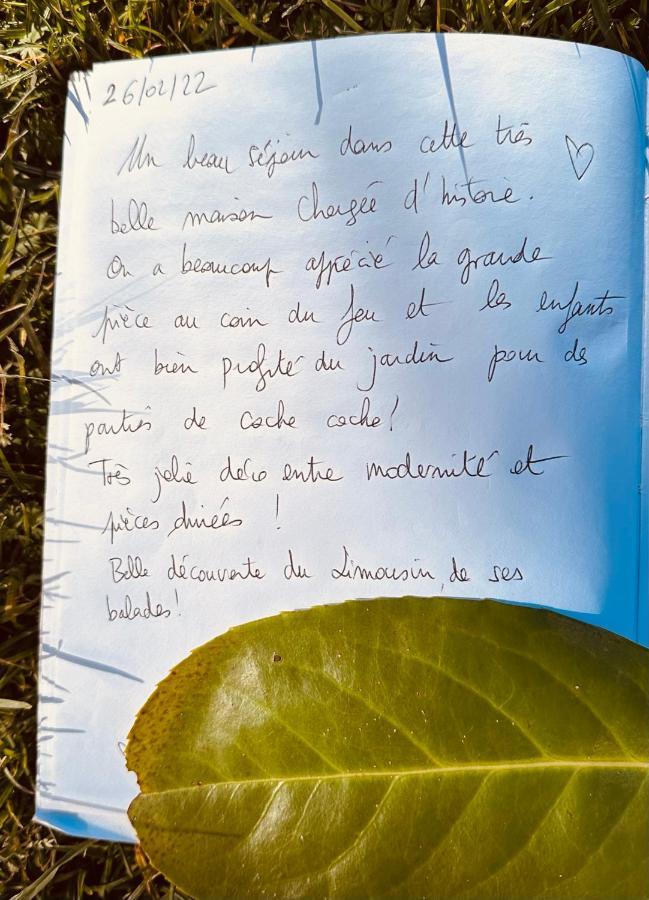 26/02/22
Un beau séjour dans cette très
belle maison chargée d'histoire.
On a beaucoup apprécié la grande
pièce au coin du feu et les enfants
ont bien profité du jardin pour des
parties de cache cache!
Très jolie déco entre modernité et
pièces chinées !
Belle découverte du Limousin, de ses
balades!